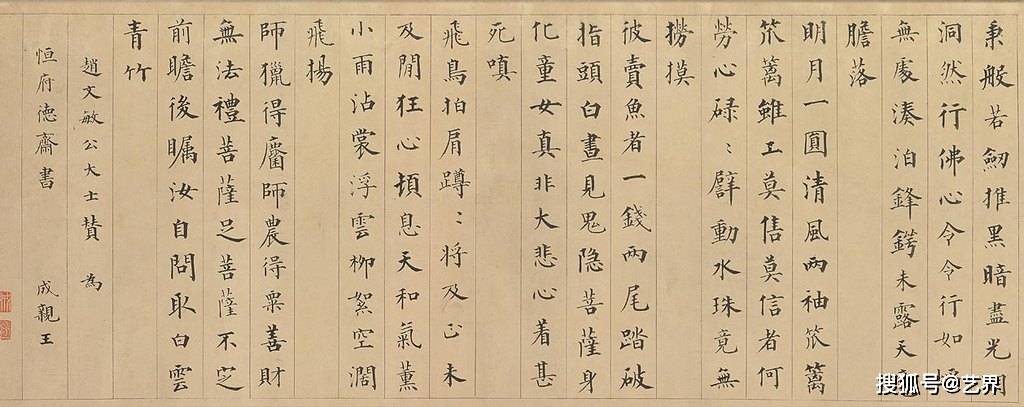 秉般若劒推黑暗盡光
洞然行佛心令令行如
無處湊泊鋒鍔未露天
膽落
明月一圓清風兩袖笊籬
笊籬雖工莫售莫信者何
勞心碌〻擘動水珠竟無
撈摸
彼賣魚者一錢兩尾踏破
指頭白晝見鬼隐菩薩身
化童女真非大悲心着甚
死嗔
飛鳥拍肩蹲〻将及正未
及閒狂心頓息天和氣薰
小雨沾裳浮雲柳絮空濶
飛揚
師獵得麕師農得粟善財
無法禮菩薩足菩薩不定
前瞻後矚汝自問取白雲
青竹
趙文敏公大士賛 為
恒府德齋書 成親王
搜狐号@艺界